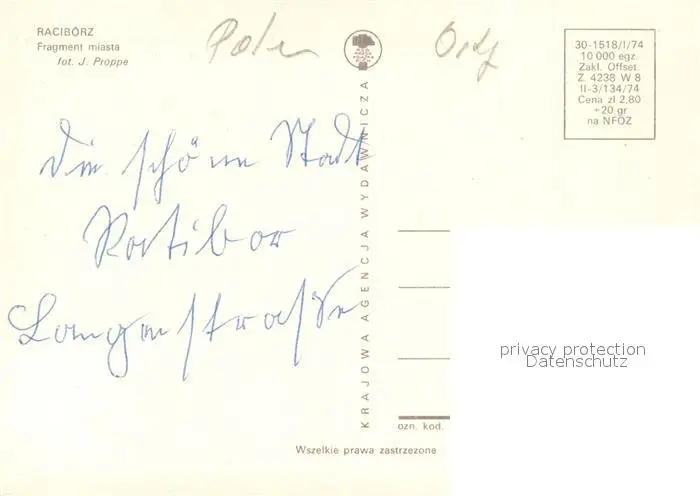 RACIBÓRZ
Fragment miasta
fot. J. Proppe
Polen
30-1518/I/74
10 000 egz.
Zakl. Offset.
Z. 4238 W 8
II-3/134/74
Cena zł 2,80
+20 gr
na NFOZ
Die schöne Stadt
Ratibor
Langenstraße
KRAJOWA AGENCJA WYDAWNICZA
privacy protection
Datenschutz
ozn. kod.
Wszelkie prawa zastrzeżone